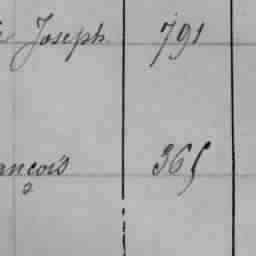 Joseph 791
ancois 365